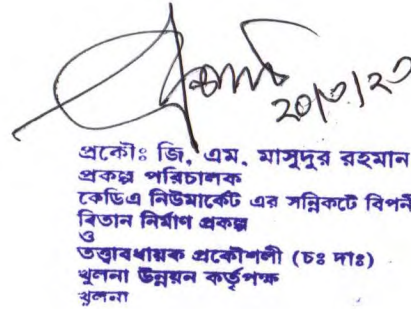 ২০/৩/২৩
প্রকৌঃ জি, এম, মাসুদুর রহমান
প্রকল্প পরিচালক
কেডিএ নিউমার্কেট এর সন্নিকটে বিপনী
বিতান নির্মাণ প্রকল্প
ও
তত্ত্বাবধায়ক প্রকৌশলী (চঃ দাঃ)
খুলনা উন্নয়ন কর্তৃপক্ষ
খুলনা